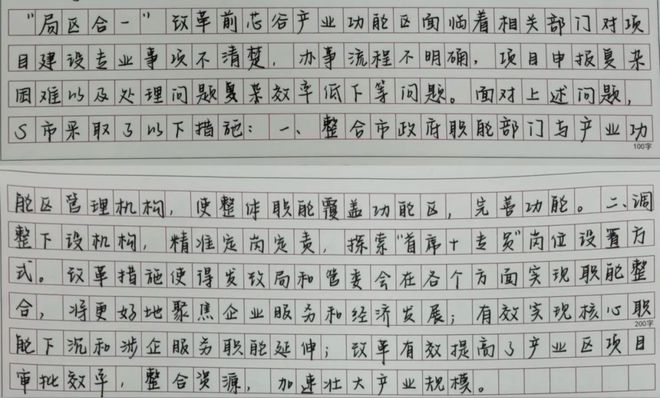 "局区合一"改革前芯谷产业功能区面临着相关部门对项
目建设专业事项不清楚，办事流程不明确，项目申报复杂
困难以及处理问题复杂效率低下等问题。面对上述问题，
S市采取了以下措施：一、整合市政府职能部门与产业功
100字
能区管理机构，使整体职能覆盖功能区，完善功能。二、调
整下设机构，精准定岗定责，探索"首席+专员"岗位设置方
式。改革措施使得发改局和管委会在各个方面实现职能整
合，将更好地聚焦企业服务和经济发展；有效实现核心职
200字
能下沉和涉企服务职能延伸；改革有效提高了产业区项目
审批效率，整合资源，加速壮大产业规模。